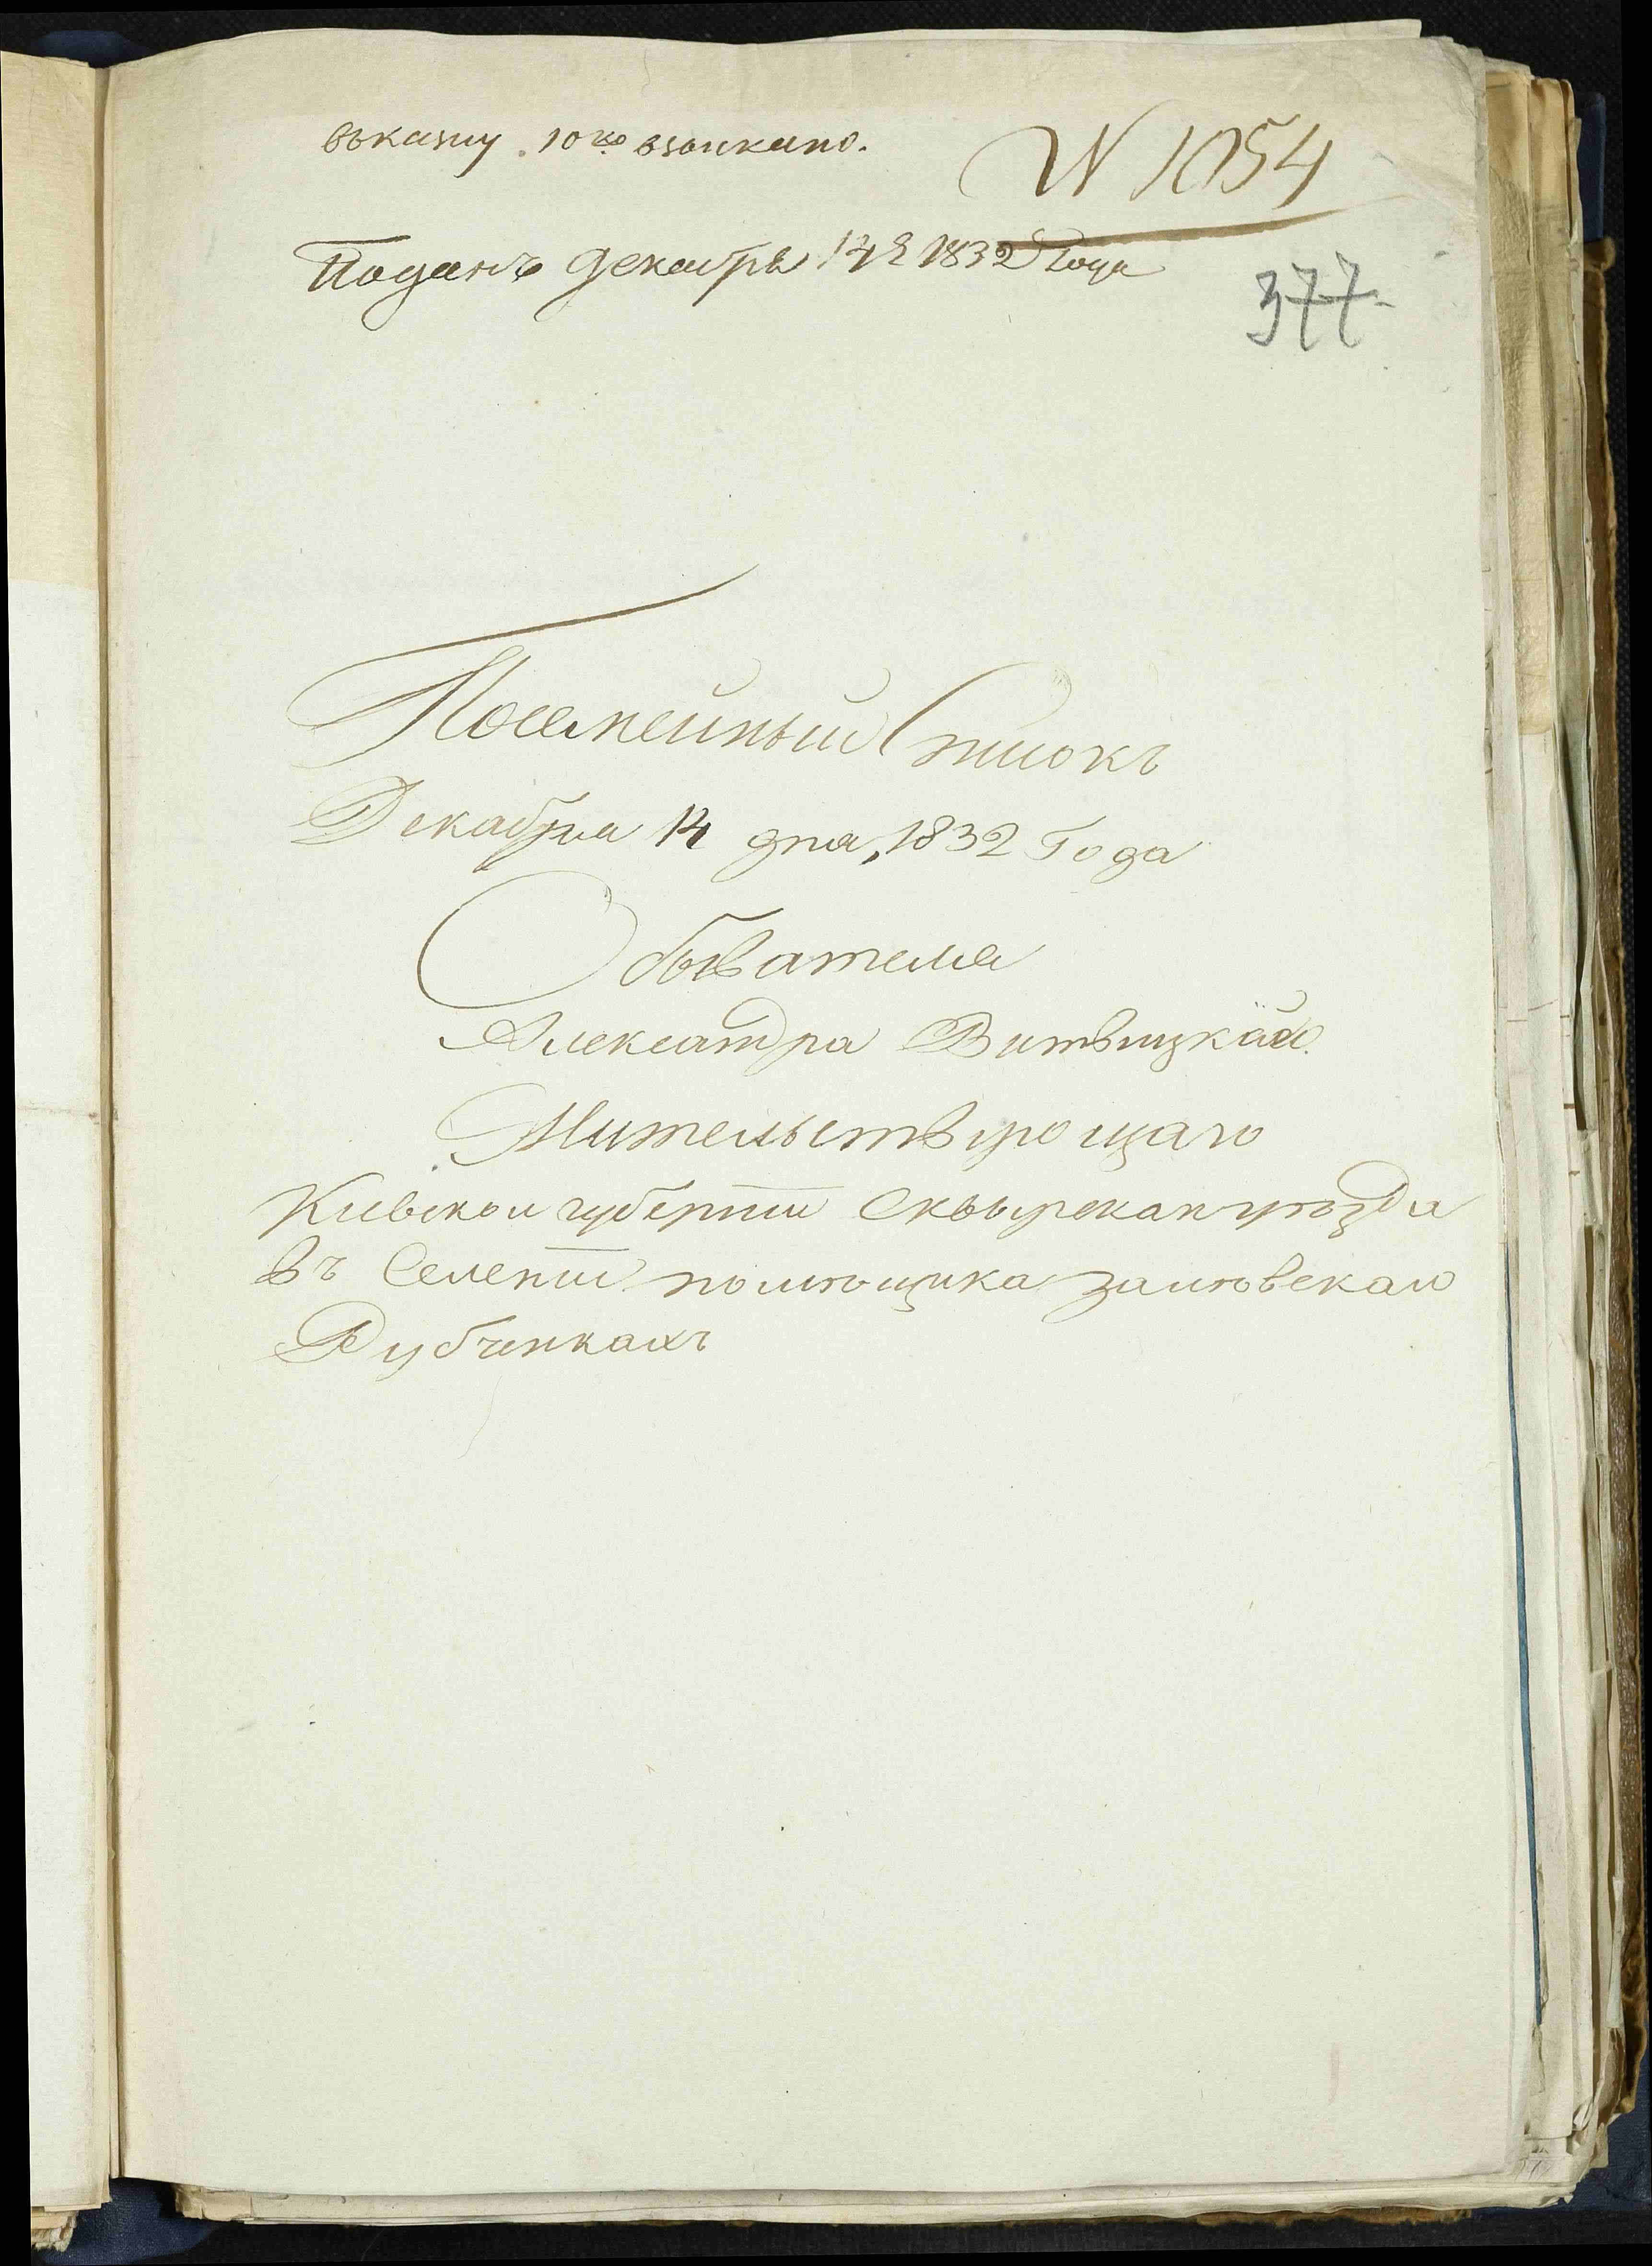 въказну 10 ко взыскано.
N 1054
Поданъ декабря 14 1832 Года
377
Посемейный Списокъ
Декабря 14 дня, 1832 Года
Обывателя
Александра Витвицкаго
Жительствующаго
Киевскои губернии Сквырскаго уезда
Въ Селении помющика
Дубчинкахъ